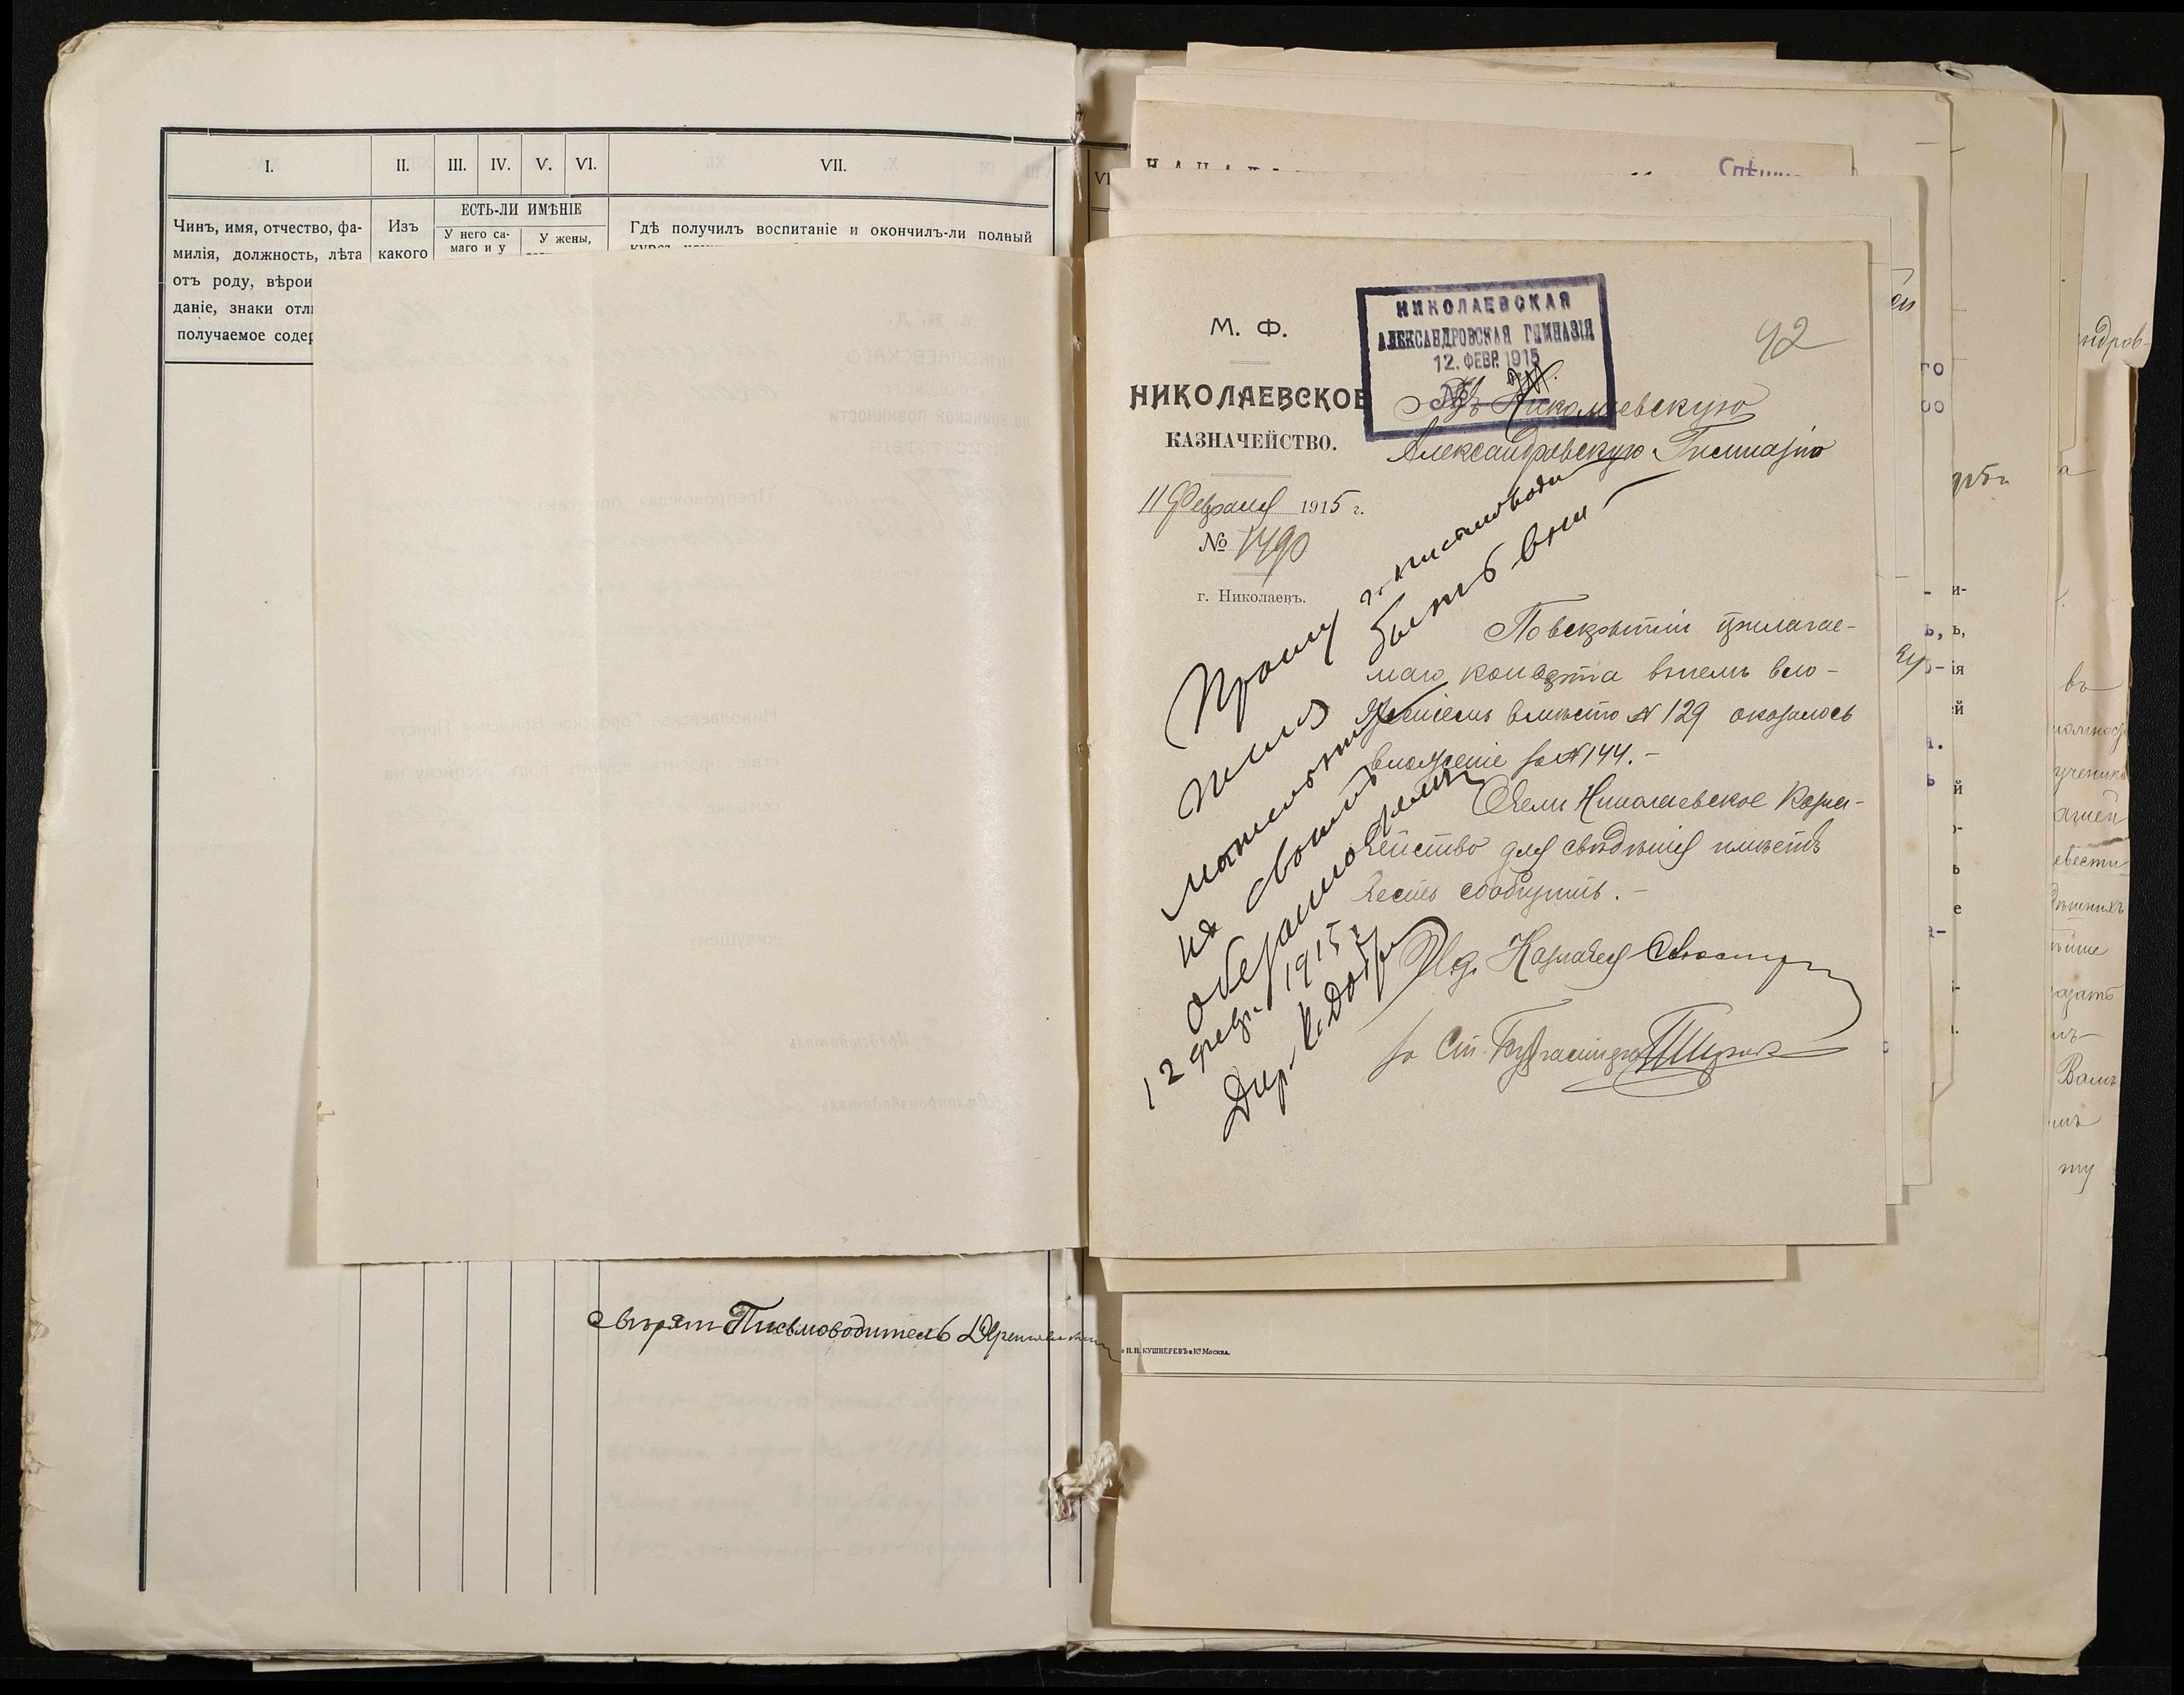 I. II. III. IV. V. VI. VII.
ЕСТЬ-ЛИ ИМѢНІЕ
Чинъ, имя, отчество, фа-
милія, должность, лѣта
отъ роду, вѣрои
даніе, знаки отл
получаемое содер
Изъ
какого
У него са-
маго и у
У жены,
Гдѣ получилъ воспитаніе и окончилъ-ли полный
Письмоводитель
М. Ф.
НИКОЛАЕВСКОЕ
КАЗНАЧЕЙСТВО.
11 Февраля 1915 г.
№ 1490
г. Николаевъ.
НИКОЛАЕВСКАЯ
АЛЕКСАНДРОВСКАЯ ГИМНАЗІЯ
12. ФЕВР. 1915
№
42
Въ Николаевскую
Александровскую Гимназію
По вскрытіи прилагае-
маго конверта въ немъ вло-
женіемъ вмѣсто № 129 оказалось
вложеніе за № 144. –
О чемъ Николаевское Казна-
чейство для свѣдѣнія имѣетъ
честь сообщить. –
И.д. Казначея
за Ст. Бухгалтера
Прошу г. письмоводи
теля быть вни–
мательнѣе
къ своимъ
обязанностямъ
12 февр. 1915 г.
Дир.
И. Н. КУШНЕРЕВЪ и Кº Москва.